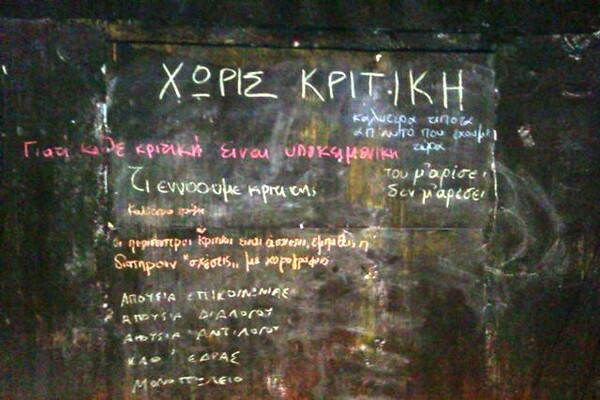 ΧΩΡΙΣ ΚΡΙΤΙΚΗ
καλυτερα τιποτα
απ' αυτο που εχουμε
τωρα
Γιατί κάθε κριτική είναι υποκειμενική
του μ'αρέσει
δεν μ'αρέσει
Τι εννοουμε κριτικη;
οι περισσότεροι κριτικοί είναι άσχετοι, εμπαθείς ή
διατηρούν "σχέσεις" με χορογράφους
ΑΠΟΥΣΙΑ ΕΠΙΚΟΙΝΩΝΙΑΣ
ΑΠΟΥΣΙΑ ΔΙΑΛΟΓΟΥ
ΑΠΟΥΣΙΑ ΑΝΤΙΛΟΓΟΥ
ΚΑΘ' ΕΔΡΑΣ
ΜΟΝΟΠΩΛΕΙΟ